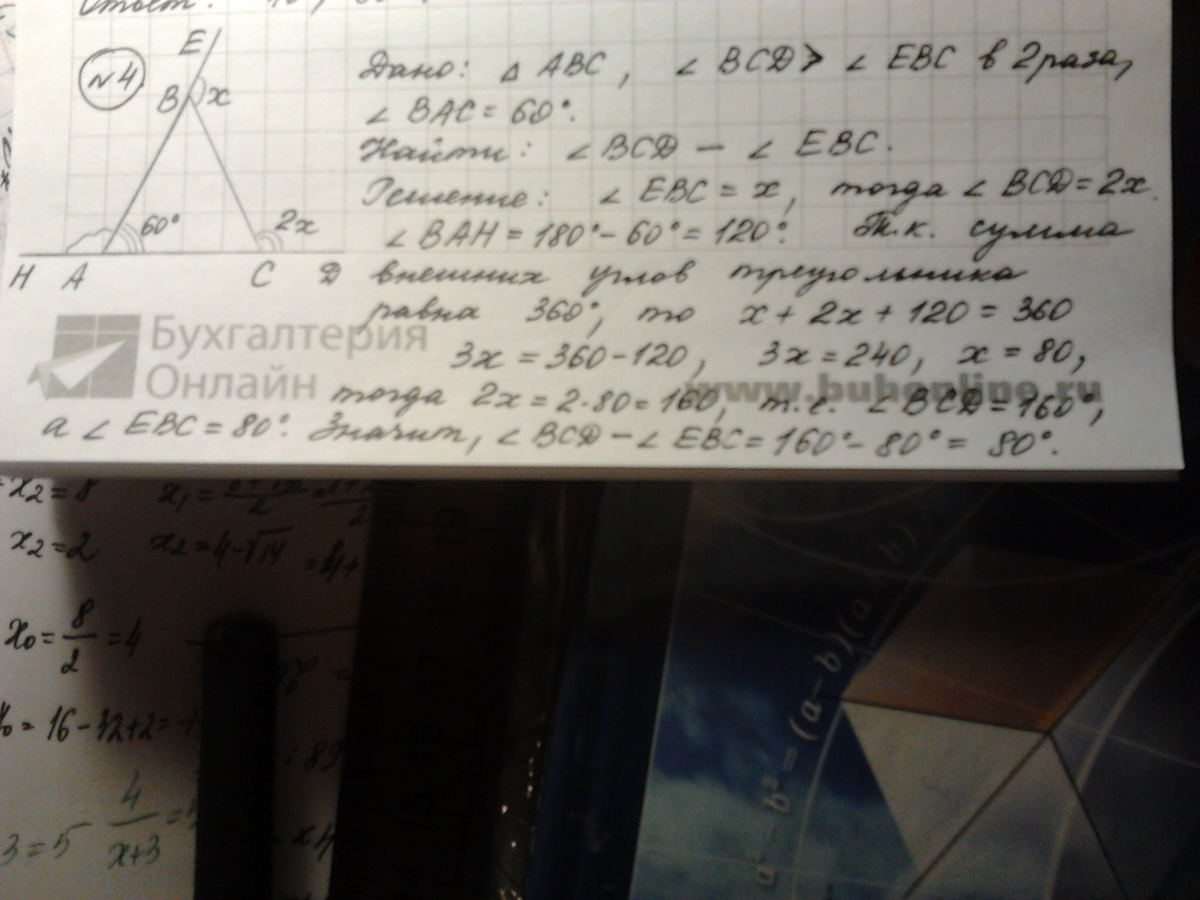 Ответ:
№4
E
B x
60° 2x
H A C D
Дано: Δ ABC, ∠ BCD > ∠ EBC в 2 раза,
∠ BAC = 60°.
Найти: ∠ BCD - ∠ EBC.
Решение: ∠ EBC = x, тогда ∠ BCD = 2x.
∠ BAH = 180° - 60° = 120°. Т.к. сумма
внешних углов треугольника
равна 360°, то x + 2x + 120 = 360
3x = 360 - 120, 3x = 240, x = 80,
тогда 2x = 2·80 = 160, т.е. ∠ BCD = 160°,
а ∠ EBC = 80°. Значит, ∠ BCD - ∠ EBC = 160° - 80° = 80°.
Бухгалтерия
Онлайн
www.buhonline.ru
x₂ = 8
x₂ = 2 x₂ = 4 - √14
x₀ = 8/2 = 4
= 16 - 32 + 2 =
3 = 5 4/x+3 =
19
18
17
16
15
14
a² - b² = (a - b)(a + b)